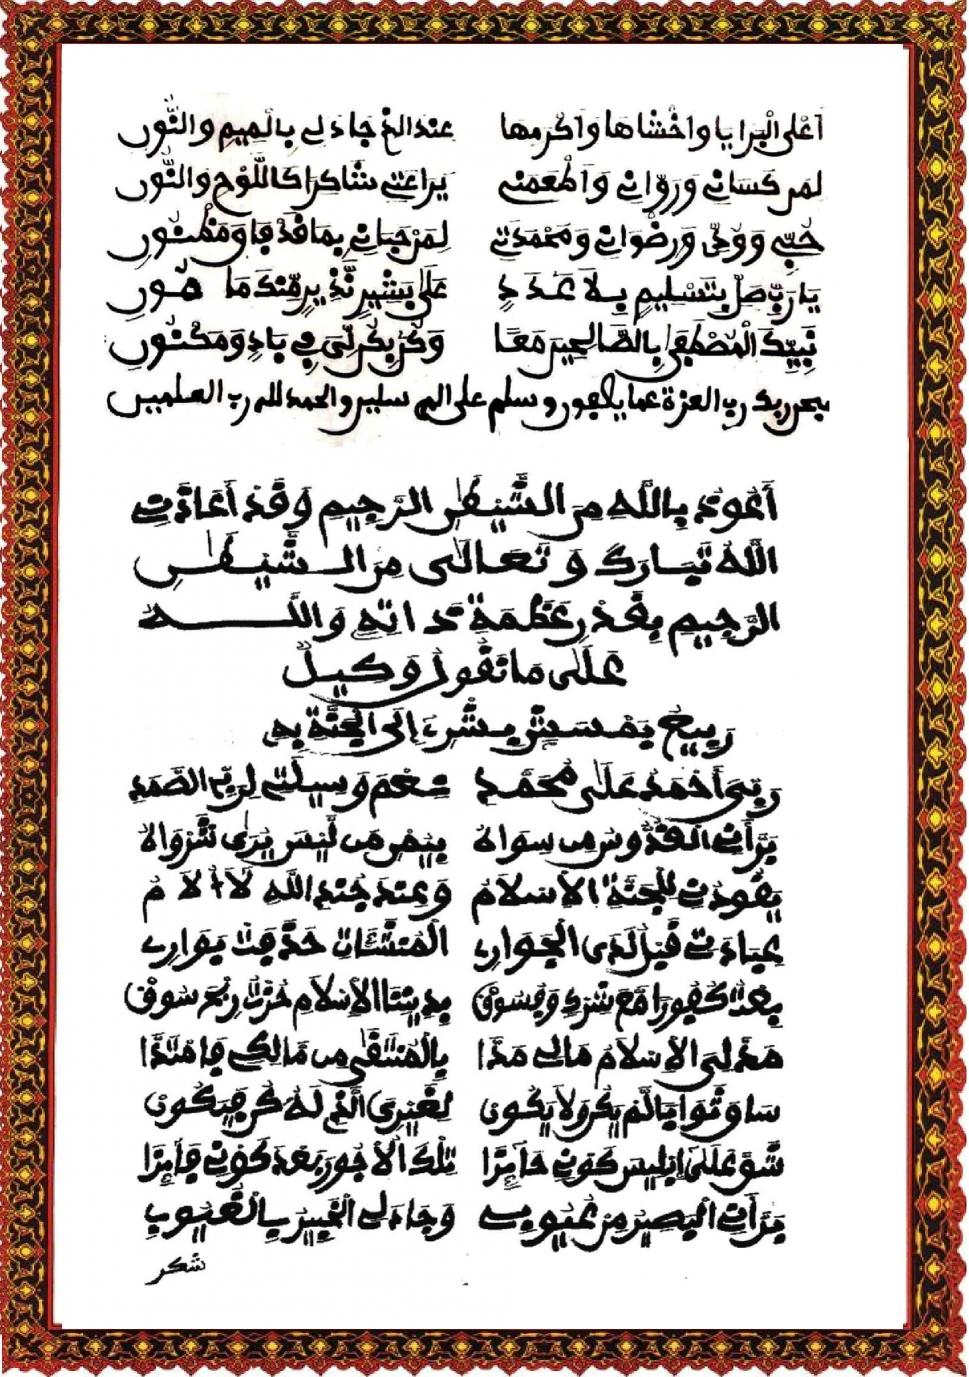 أعلى البرايا وأخشاها وأكرمها عند الذي جاد لي بالميم والنون
لمن كساني ورواني وأطعمني يراعتي شاكرا كاللوح والنون
حبي وودي ورضواني ومحمدتي لمن حباني بما قد فا ومظنون
يا رب صل بتسليم بلا عدد على بشير نذير منك ما هون
نبيك المصطفى بالصالحين معا وكن بكن لي في باد ومكنون
سبحن ربك رب العزة عما يصفون وسلم على المرسلين والحمد لله رب العلمين
أعوذ بالله من الشيطن الرجيم وقد أعاذني
الله تبارك وتعالى من الشيطن
الرجيم بقدر عظمة ذاته والله
على ما نقول وكيل
ربيع يمسش بشرى إلى الجنة به
ربي أحمد على محمد نعم وسيلتي لربي الصمد
برأني القدوس من سواه بيمن من ليس يرى شرواه
يقودني للجنة الإسلام وعند جند الله لا ألام
عبادتي قبل لدى الجوار المنشئات حدقت بوار
بعت كفورا مع شرك وفسوق بديننا الإسلام حزت ربح سوق
هذا لي الإسلام مالي هذا بالمنتقى من مالك فا منذا
ساوقوا ما لم يكن ولا يكون لغيري الذي له كن فيكون
شق على إبليس كوني حائزا تلك الأجور بعد كوني فائزا
برأني البصير من عيوب وجاد لي الخبير بالغيوب
شكر